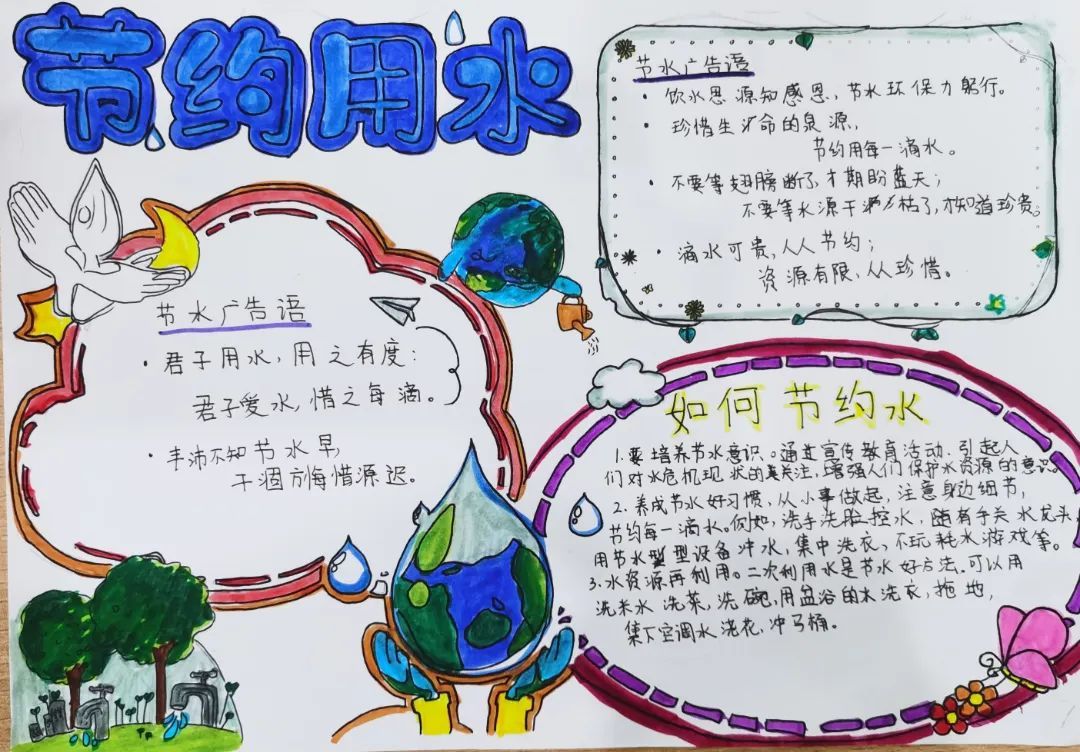 节约用水
节水广告语
· 饮水思源知感恩，节水环保力躬行。
· 珍惜生命的泉源，
节约用每一滴水。
· 不要等翅膀断了，才期盼蓝天；
不要等水源干涸枯了，才知道珍贵。
· 滴水可贵，人人节约；
资源有限，从珍惜。
节水广告语
· 君子用水，用之有度：
君子爱水，惜之每滴。
· 丰沛不知节水早，
干涸方悔惜源迟。
如何节约水
1.要培养节水意识。通过宣传教育活动，引起人
们对水危机现状的关注，增强人们保护水资源的意识。
2.养成节水好习惯，从小事做起，注意身边细节，
节约每一滴水。例如，洗手洗脸控水，随有手关水龙头，
用节水型设备冲水，集中洗衣，不玩耗水游戏等。
3.水资源再利用。二次利用水是节水好方法，可以用
洗米水洗菜，洗碗，用盆浴的水洗衣，拖地，
集下空调水浇花，冲马桶。